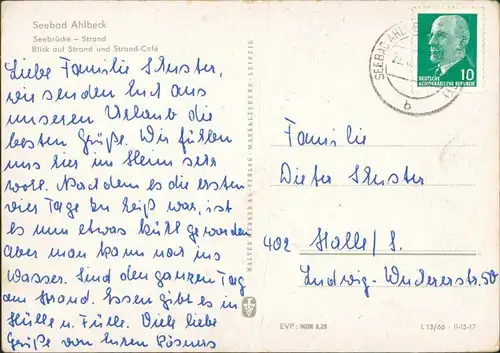 Seebad Ahlbeck
Seebrücke – Strand
Blick auf Strand und Strand-Café
Liebe Familie Schuster,
wir senden Euch aus
unserem Urlaub die
besten Grüße. Wir fühlen
uns hier im Heim sehr
wohl. Nachdem es die ersten
vier Tage zu heiß war, ist
es nun etwas kühl geworden
aber man kann noch ins
Wasser. Sind den ganzen Tag
am Strand. Essen gibt es in
Hülle u. Fülle. Viele liebe
Grüße von Euren Rösners
SEEBAD AHL
b
DEUTSCHE
DEMOKRATISCHE REPUBLIK
10
Familie
Dieter Schuster
402 Halle/S.
Ludwig-Wucherer-Str. 50
EVP: MDN 0,20
L 13/66 · II-13-17